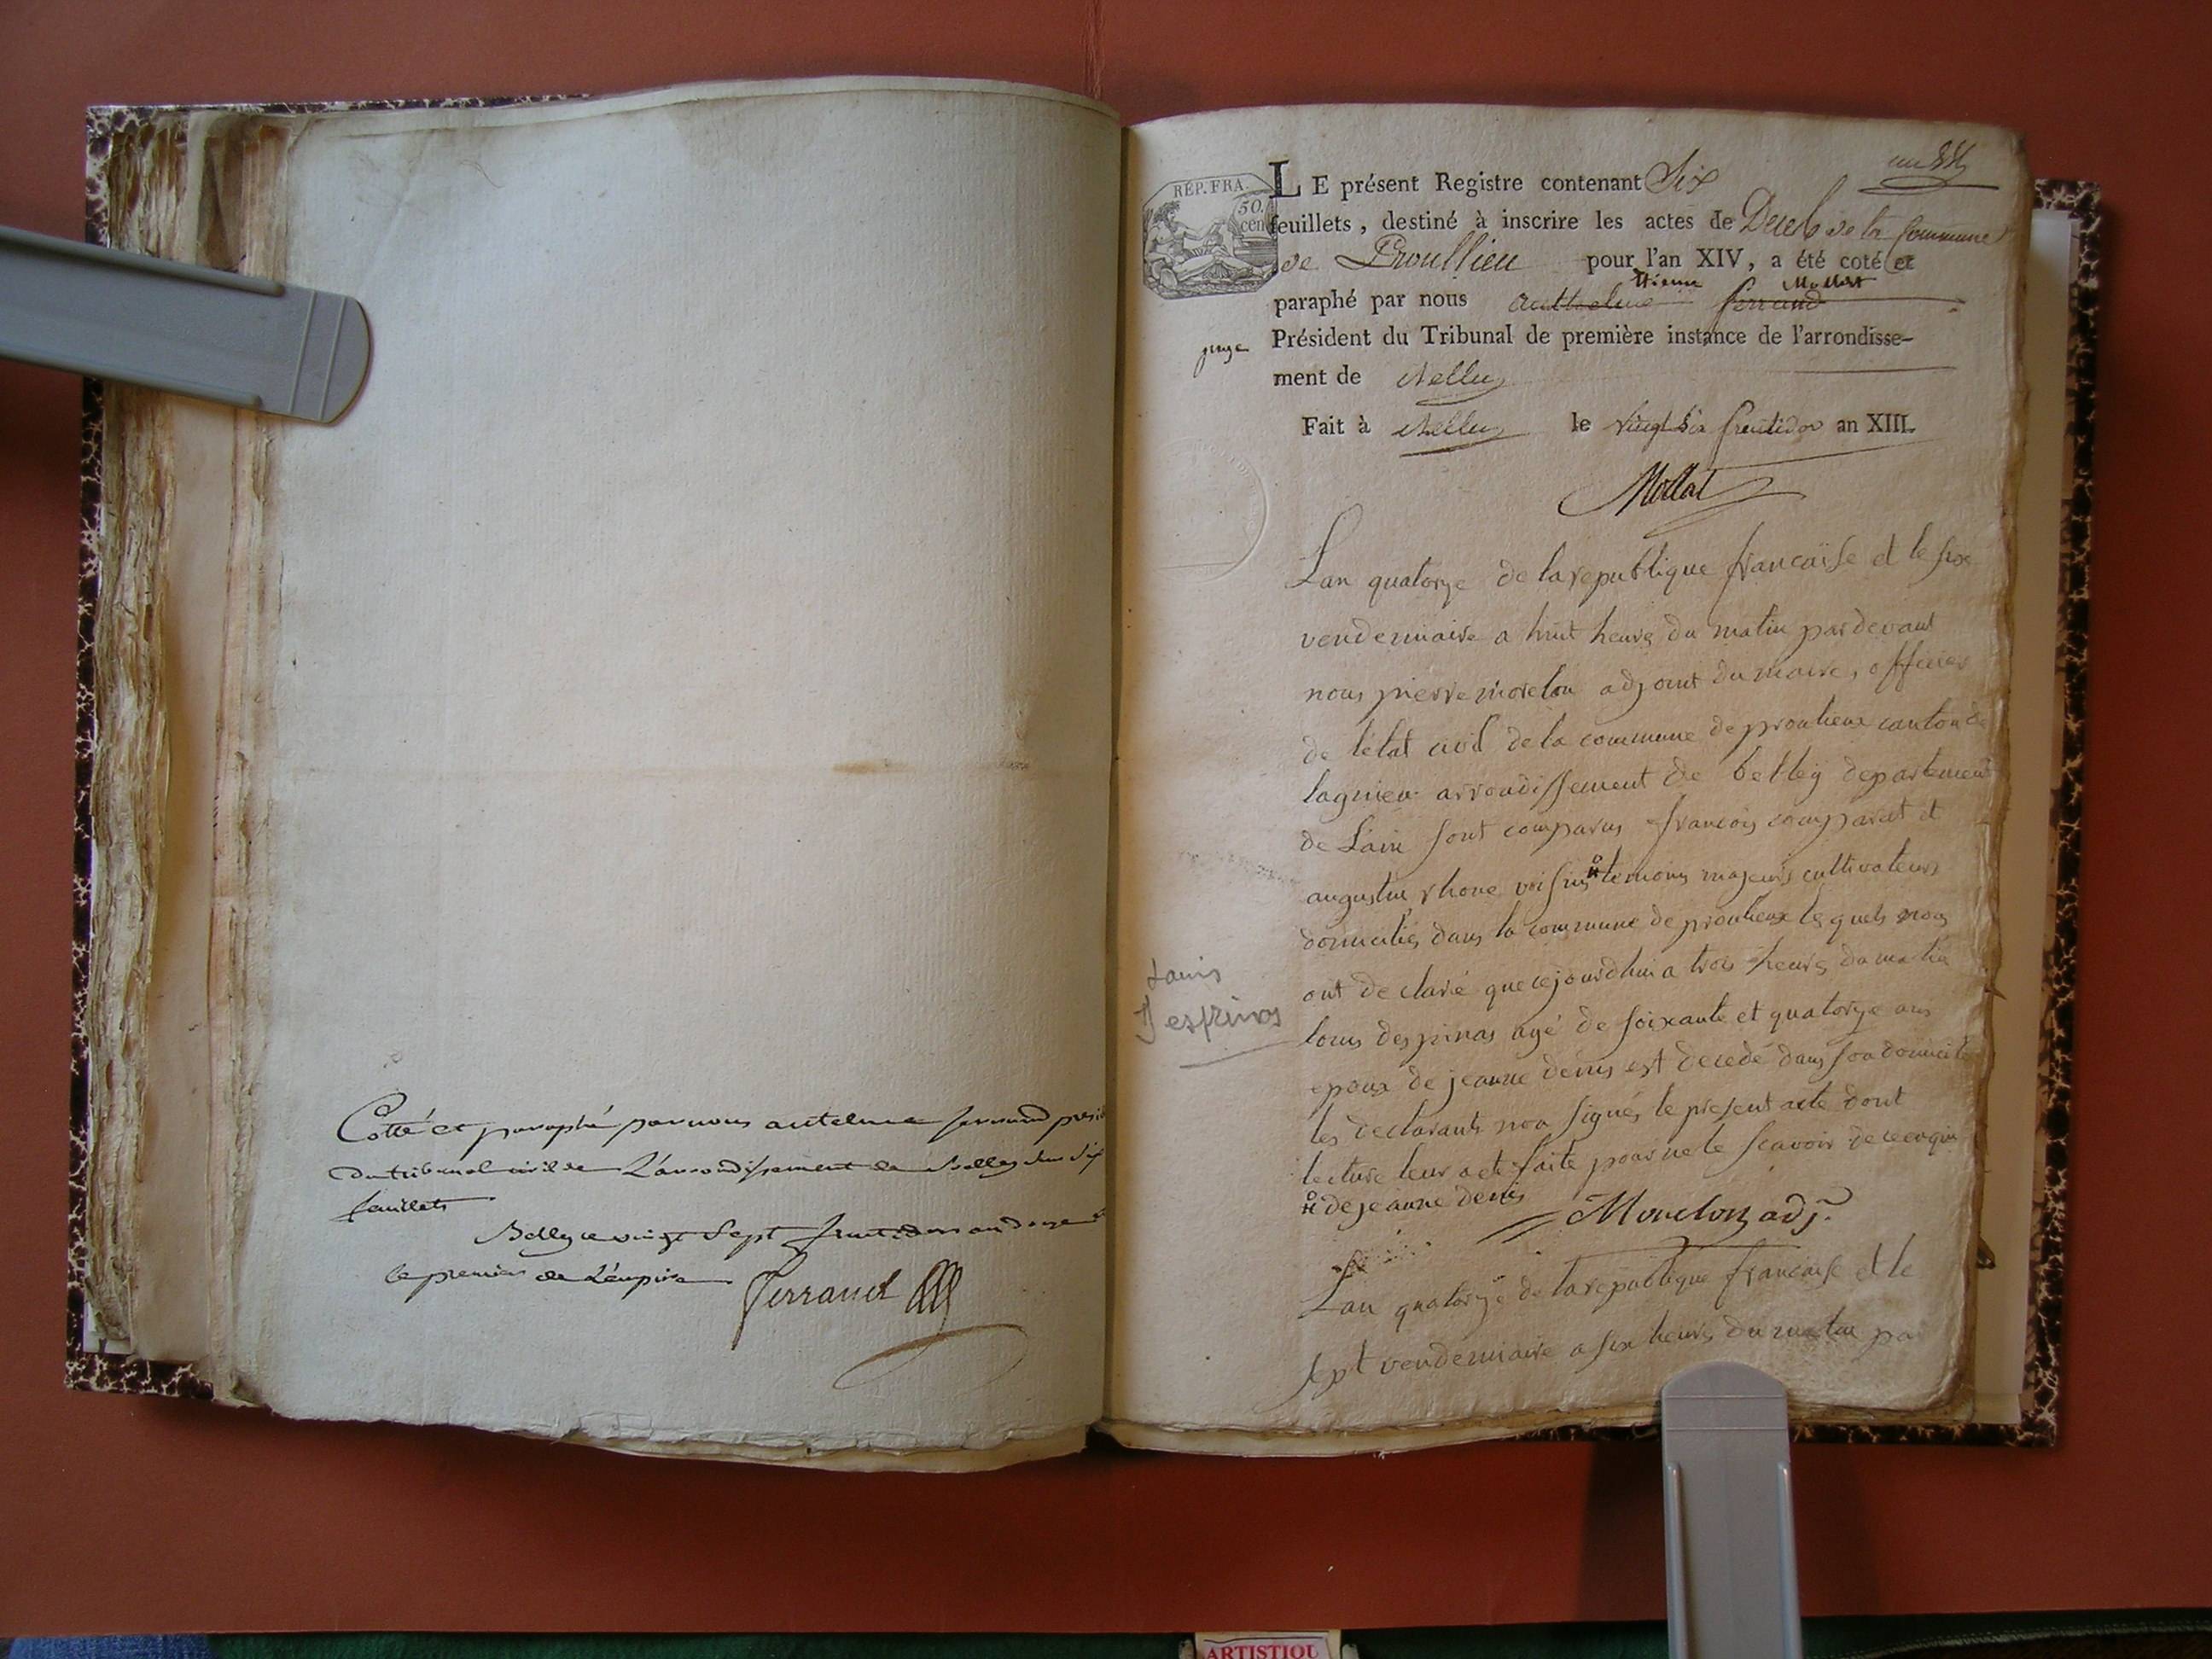 Cotté et paraphé par nous antelme ferrand presid
du tribunal civil de L'arrondissement de Belley les Six
feuillets
Belley ce vingt Sept fructidor an
le premier de L'empire
Ferrand
RÉP. FRA.
50. cen
LE présent Registre contenant Six
feuillets, destiné à inscrire les actes de Décès de la Commune
de Proullieu pour l'an XIV, a été coté et
Etienne Mollat
paraphé par nous anthelme ferrand
juge
Président du Tribunal de première instance de l'arrondisse-
ment de Belley
Fait à Belley le vingt Six fructidor an XIII.
Mollat
Lan quatorze de la republique francaise et le six
vendemiaire a huit heures du matin pardevant
nous pierre morelon adjoint du maire, officier
de létat civil de la commune de proulieux canton de
lagnieu arrondissement de belley departement
de Lain sont comparus francois comparat et
augustin rhone voisins # temoins majeurs cultivateurs
domiciliés dans la commune de proulieux lesquels nous
ont declaré que cejourdhui a trois heures du matin
Louis
Despinas
louis despinas agé de soixante et quatorze ans
epoux de jeanne denis est decedé dans son domicile
les declarants non signés le present acte dont
lecture leur a eté faite pour ne le scavoir de ce enquis
# de jeanne denis
Morelon adj.
Lan quatorze de la republique francaise et le
sept vendemiaire a six heures du matin par
ARTISTIQU